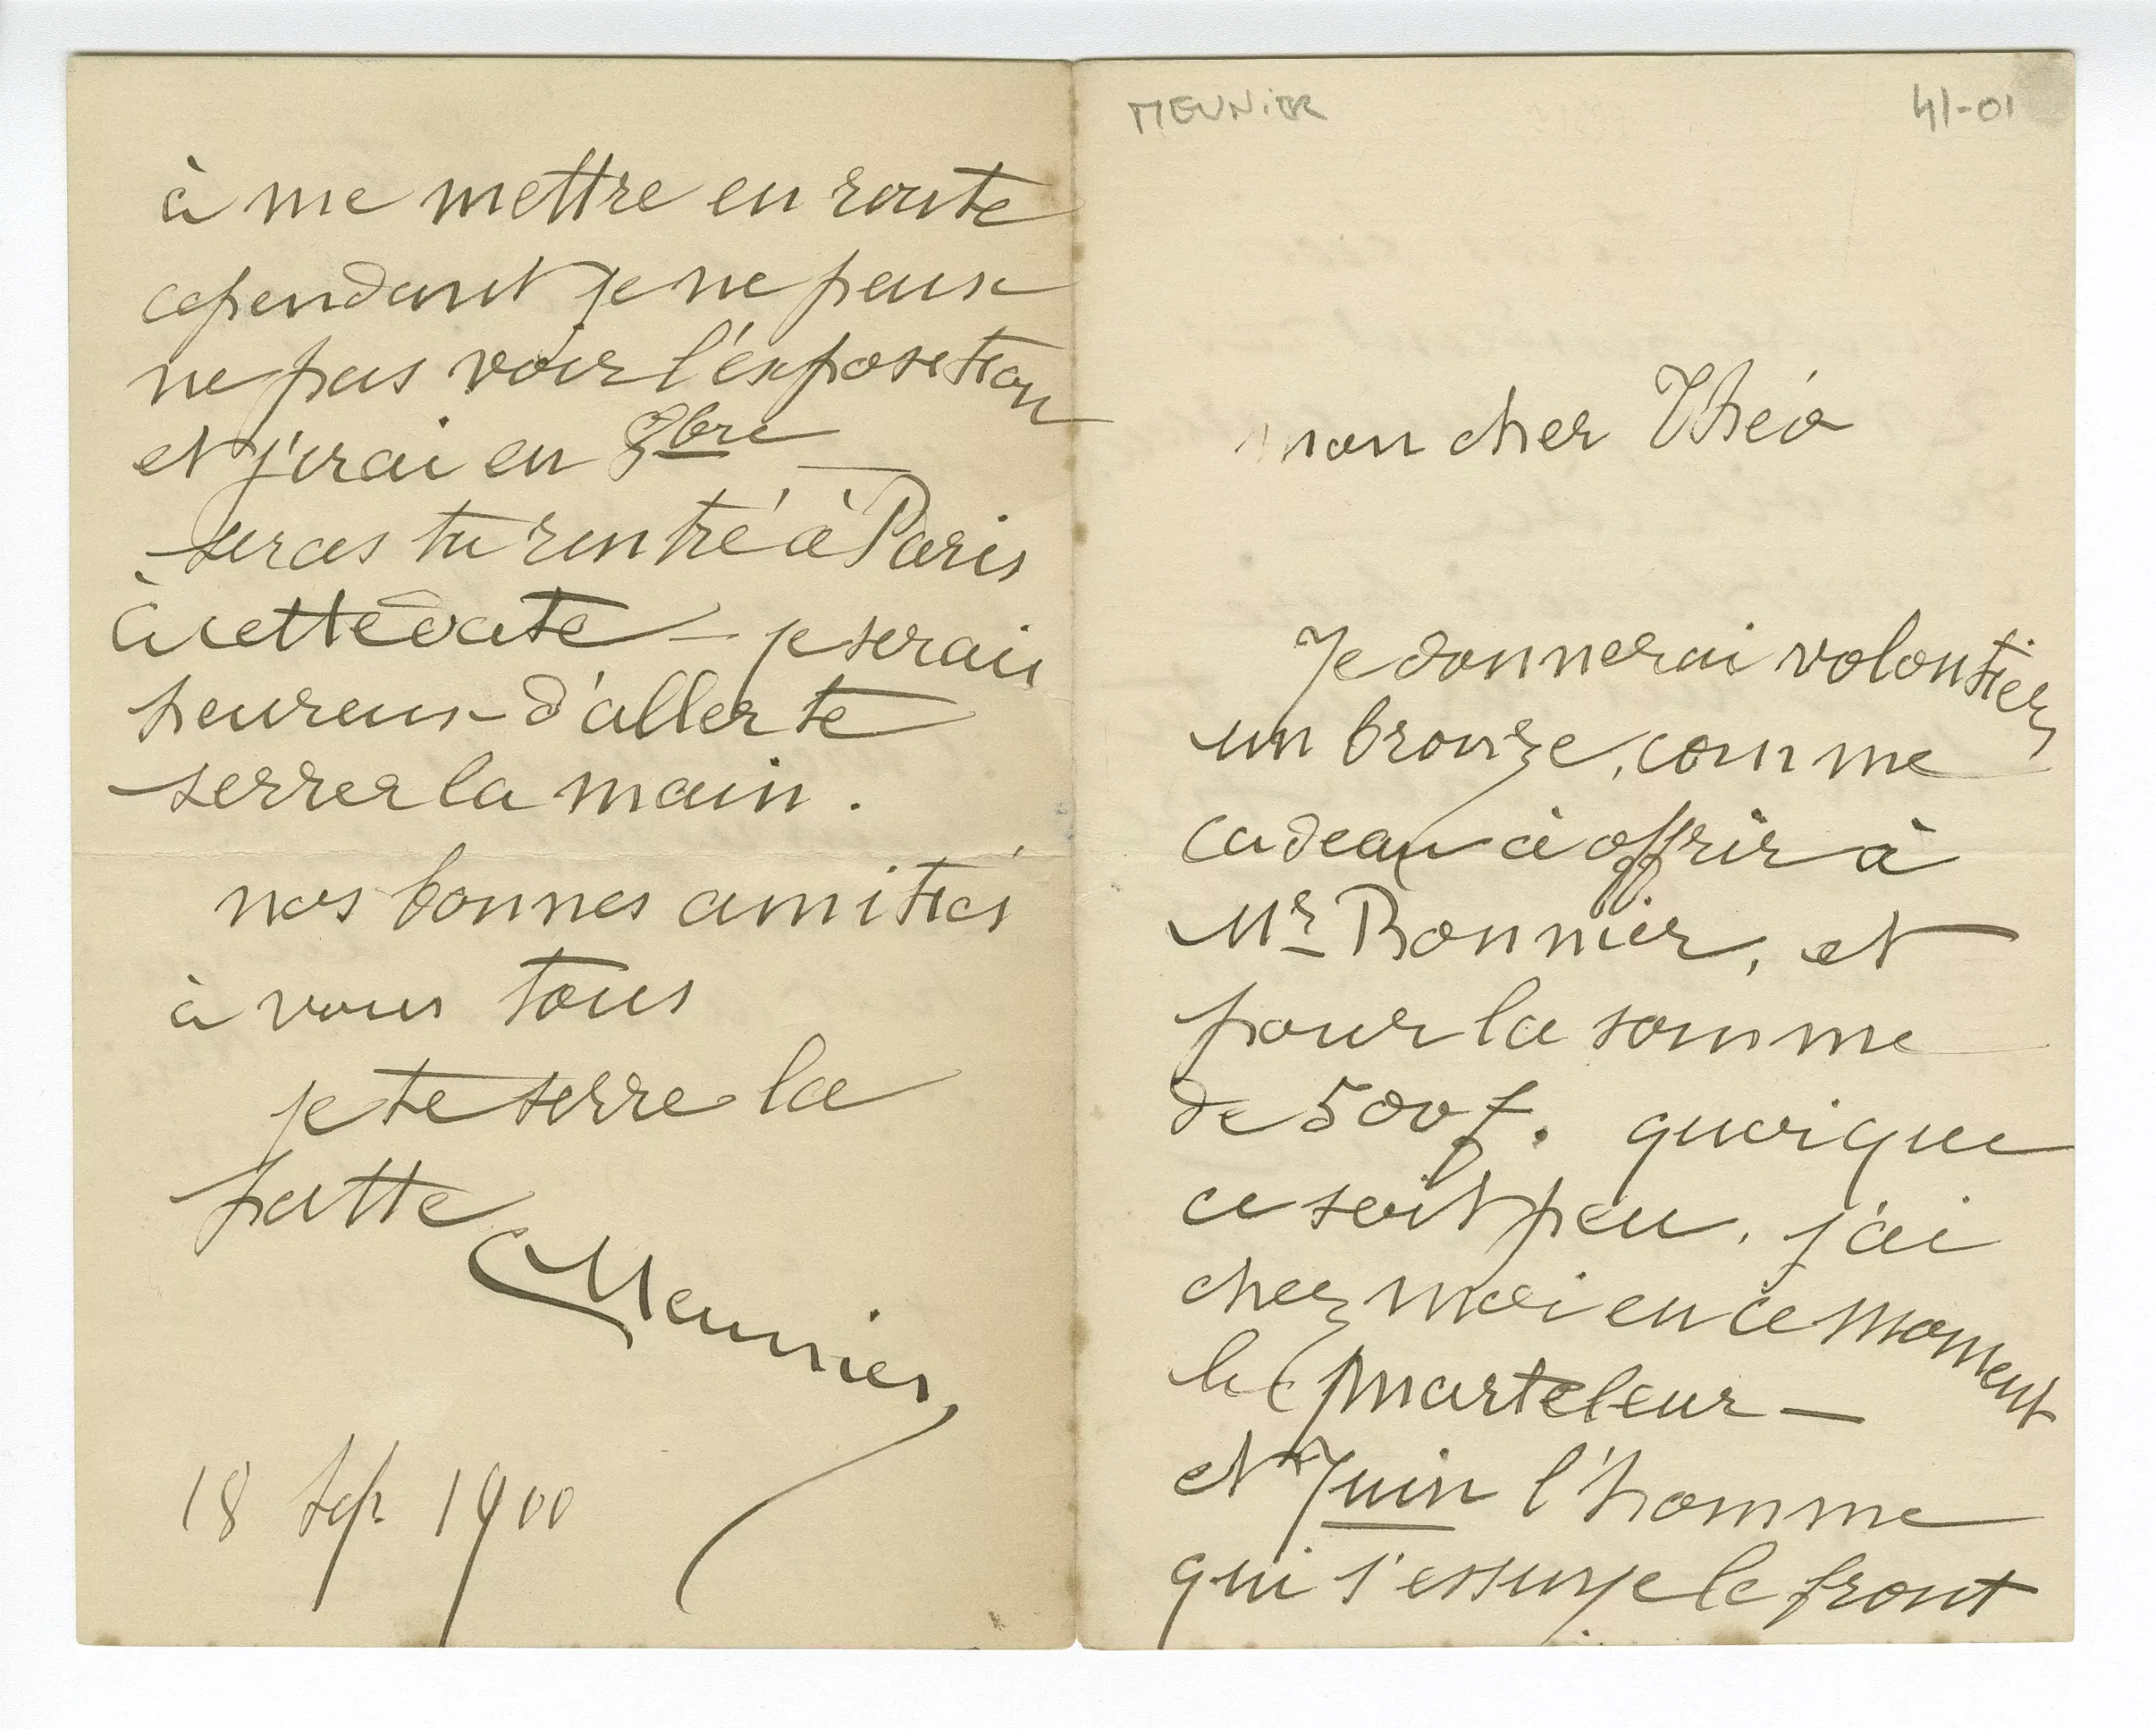 MEUNIER
41-01
mon cher Théo
Je donnerai volontiers
un bronze, comme
cadeau à offrir à
Mr Bonnier, et
pour la somme
de 500 f. quoique
ce soit peu. j'ai
chez moi en ce moment
le marteleur —
et Juin l'homme
qui s'essuye le front
à me mettre en route
cependant je ne peux
ne pas voir l'exposition
et j'irai en 8bre —
seras tu rentré à Paris
à cette date – je serais
heureux d'aller te
serrer la main.
nos bonnes amitiés
à vous tous
je te serre la
patte
Meunier
18 Sep 1900